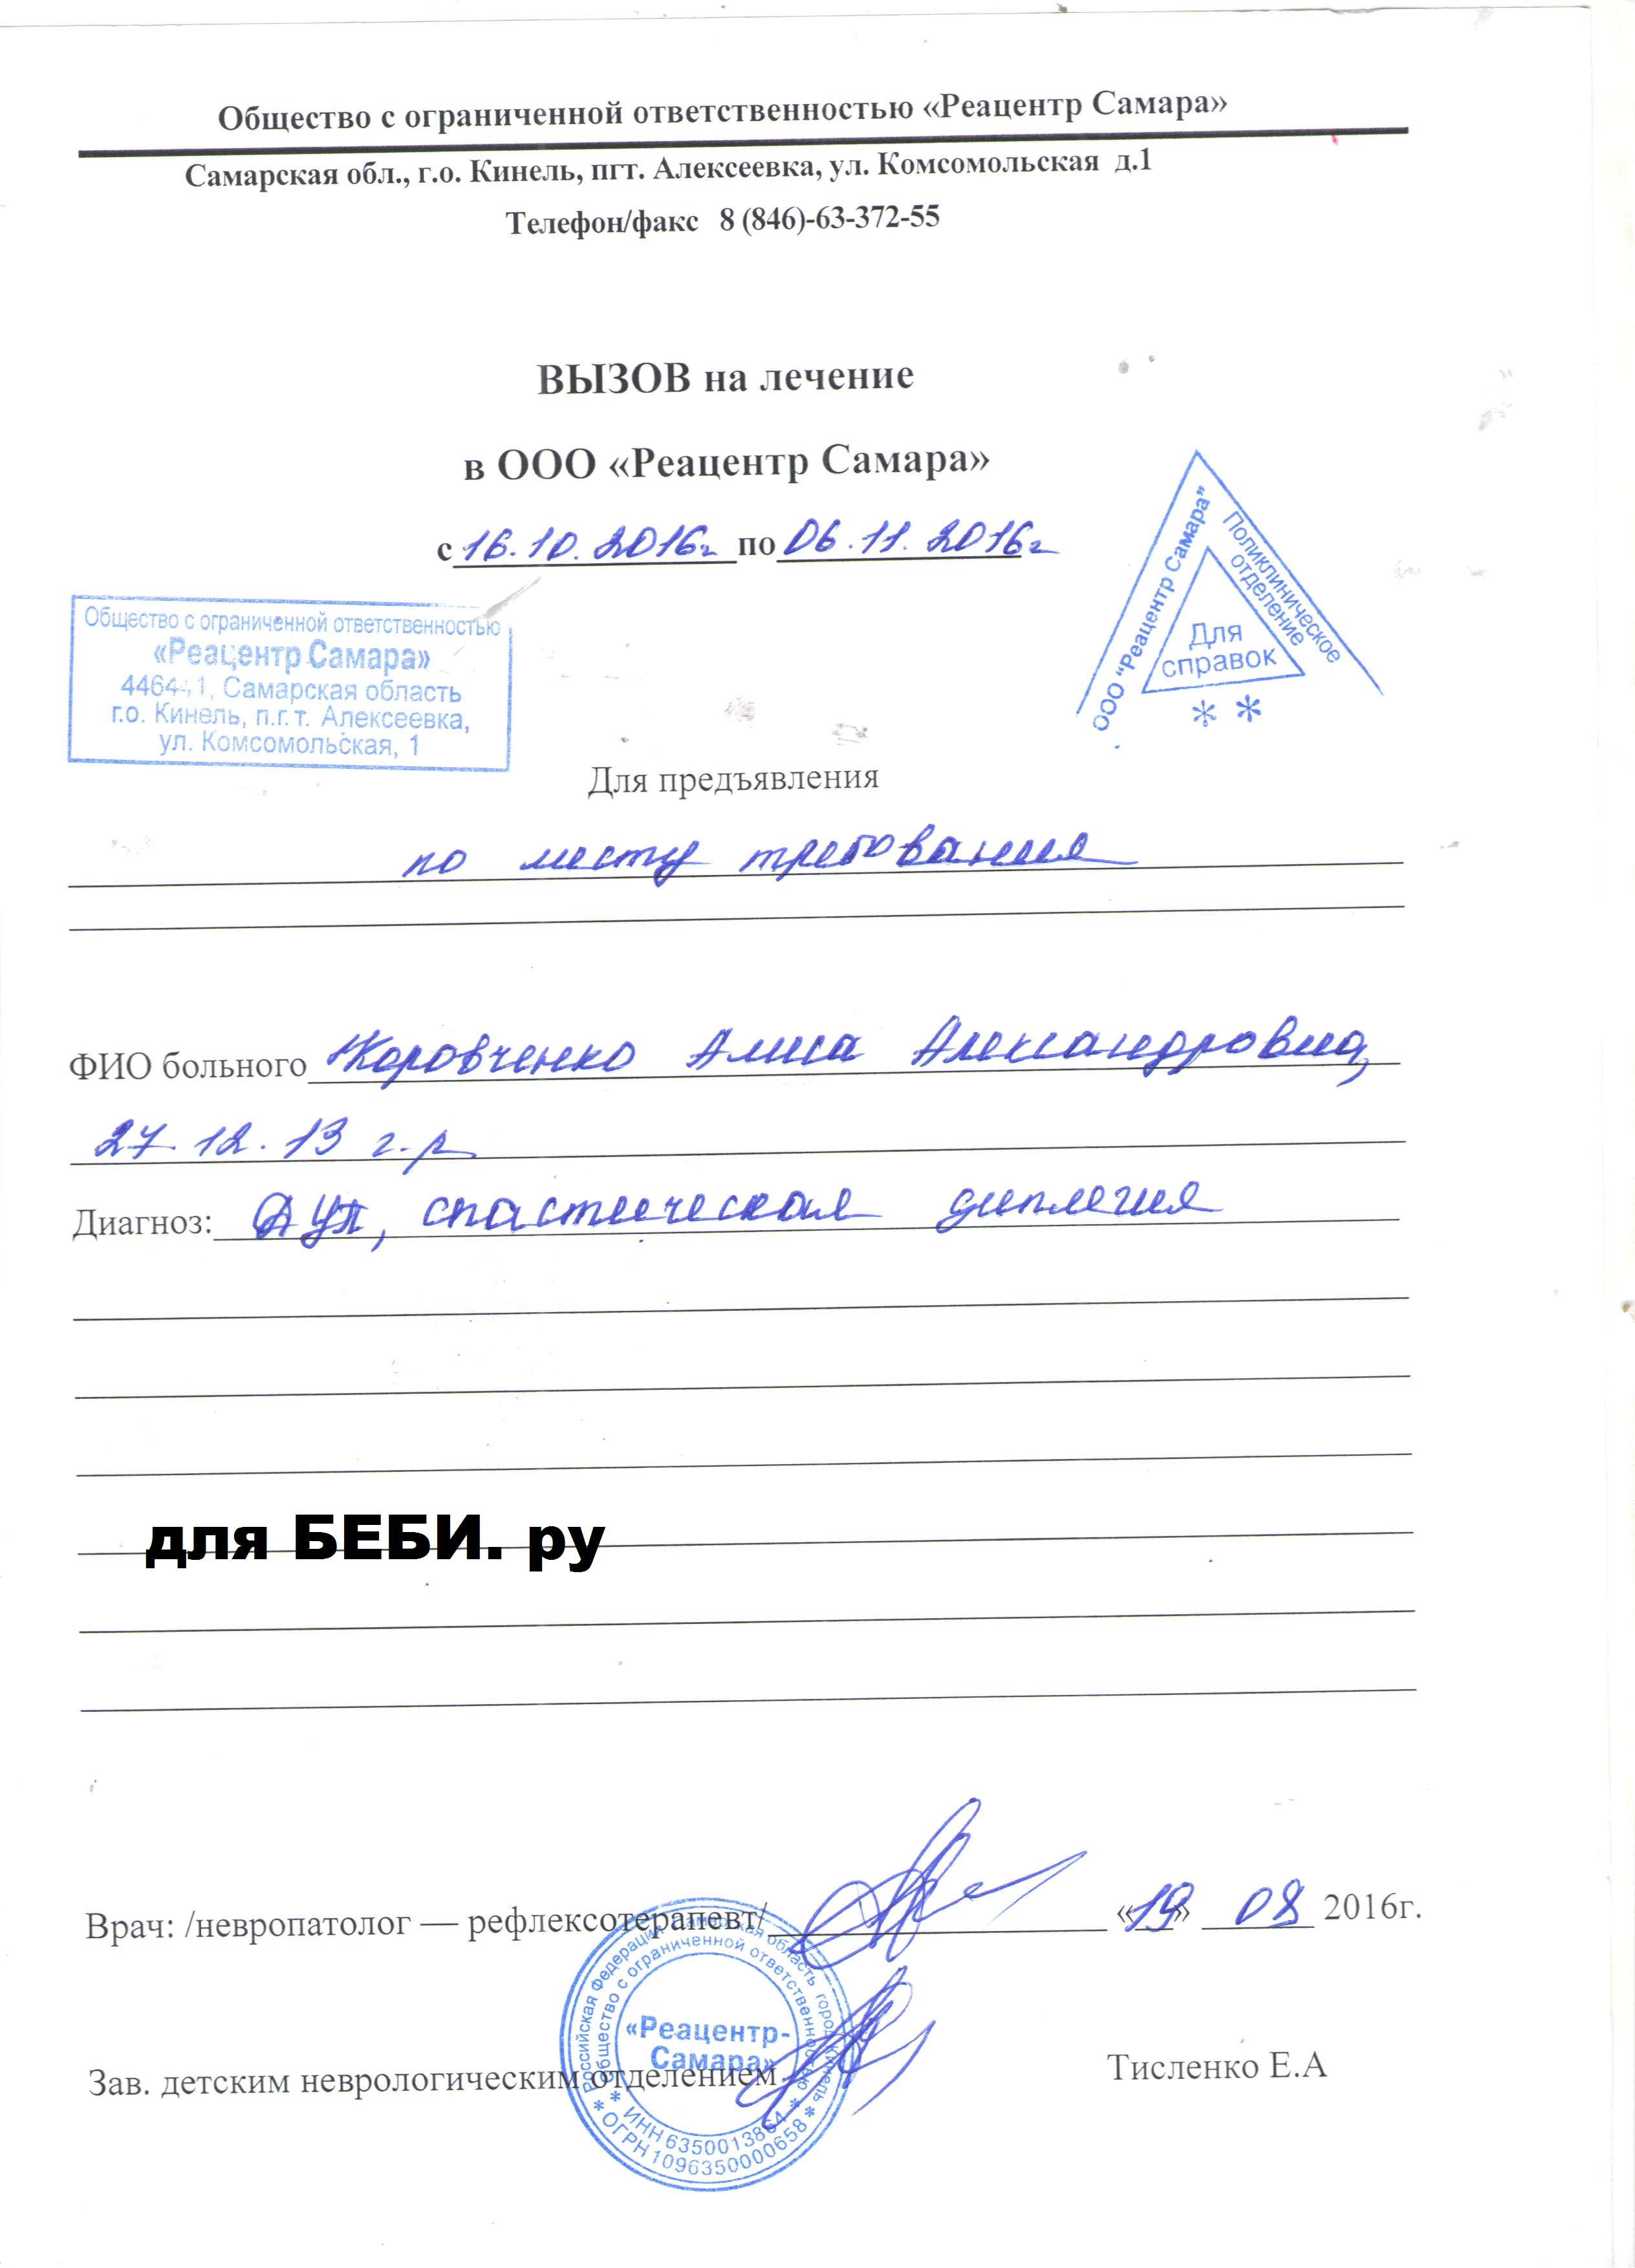 Общество с ограниченной ответственностью «Реацентр Самара»
Самарская обл., г.о. Кинель, пгт. Алексеевка, ул. Комсомольская д.1
Телефон/факс 8 (846)-63-372-55
ВЫЗОВ на лечение
в ООО «Реацентр Самара»
с 16.10.2016г по 06.11.2016г
Общество с ограниченной ответственностью
«Реацентр Самара»
Самарская область
г.о. Кинель, п.г.т. Алексеевка,
ул. Комсомольская, 1
ООО "Реацентр Самара"
Поликлиническое
отделение
Для
справок
* *
Для предъявления
по месту требования
ФИО больного Алиса Александровна,
27.12.13 г.р
Диагноз: ДЦП, спастическая диплегия
для БЕБИ. ру
Врач: /невропатолог — рефлексотерапевт/ «19» 08 2016г.
Российская Федерация Самарская область город Кинель
Общество с ограниченной ответственностью
«Реацентр-
Самара»
* ИНН 6350013864 *
* ОГРН 1096350000658 *
Зав. детским неврологическим отделением Тисленко Е.А